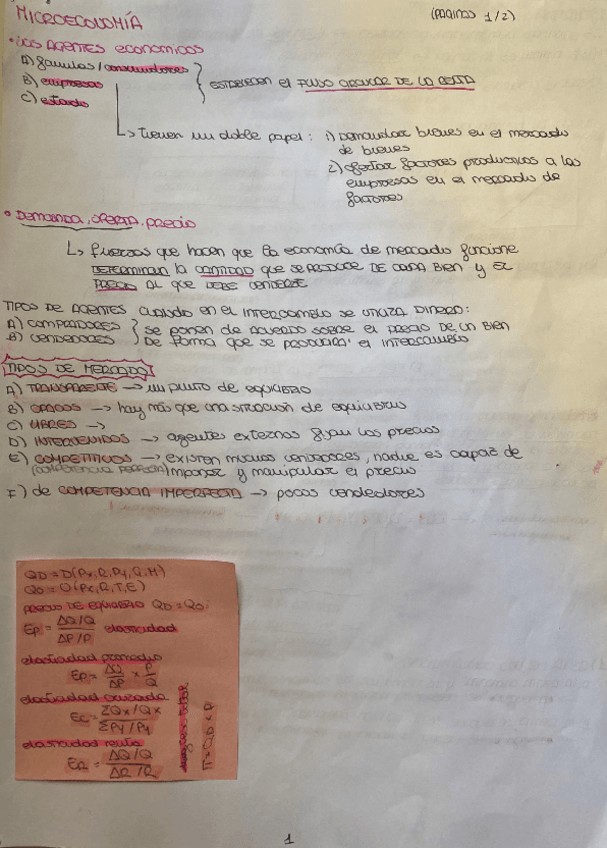 MICROECONOMÍA
(PÁGINAS 1/2)
• LOS AGENTES económicos
A) familias / consumidores
B) empresas
C) estado
ESTABLECEN el FLUJO CIRCULAR DE LA RENTA
↳ tienen un doble papel: 1) Demandar bienes en el mercado
de bienes
2) ofertar factores productivos a las
empresas en el mercado de
factores
• DEMANDA, OFERTA, precio
↳ fuerzas que hacen que la economía de mercado funcione
DETERMINAN la CANTIDAD que SE PRODUCE DE CADA BIEN y EL
PRECIO AL QUE DEBE VENDERSE
TIPOS DE AGENTES CUANDO EN EL INTERCAMBIO SE UTILIZA DINERO:
A) COMPRADORES
B) VENDEDORES
SE PONEN DE ACUERDO SOBRE EL PRECIO DE UN BIEN
DE FORMA QUE SE PRODUCIRÁ EL INTERCAMBIO
TIPOS DE MERCADOS
A) TRANSPARENTE → un punto de equilibrio
B) OPACOS → hay más que una situación de equilibrio
C) LIBRES →
D) INTERVENIDOS → agentes externos fijan los precios
E) COMPETITIVOS → existen muchos vendedores, nadie es capaz de
(COMPETENCIA PERFECTA) imponer y manipular el precio
F) de COMPETENCIA IMPERFECTA → pocos vendedores
QD = D(Px, R, Py, G, H)
QO = O(Px, R, T, E)
PRECIO DE EQUILIBRIO QD = QO
Ep = ΔQ/Q / ΔP/P elasticidad
elasticidad promedio
Ep = ΔQ/ΔP × P/Q
elasticidad cruzada
Ec = ΣQx/Qx / ΣPy/Py
elasticidad renta
ER = ΔQ/Q / ΔR/R
ingreso total
IT = QD × P
1